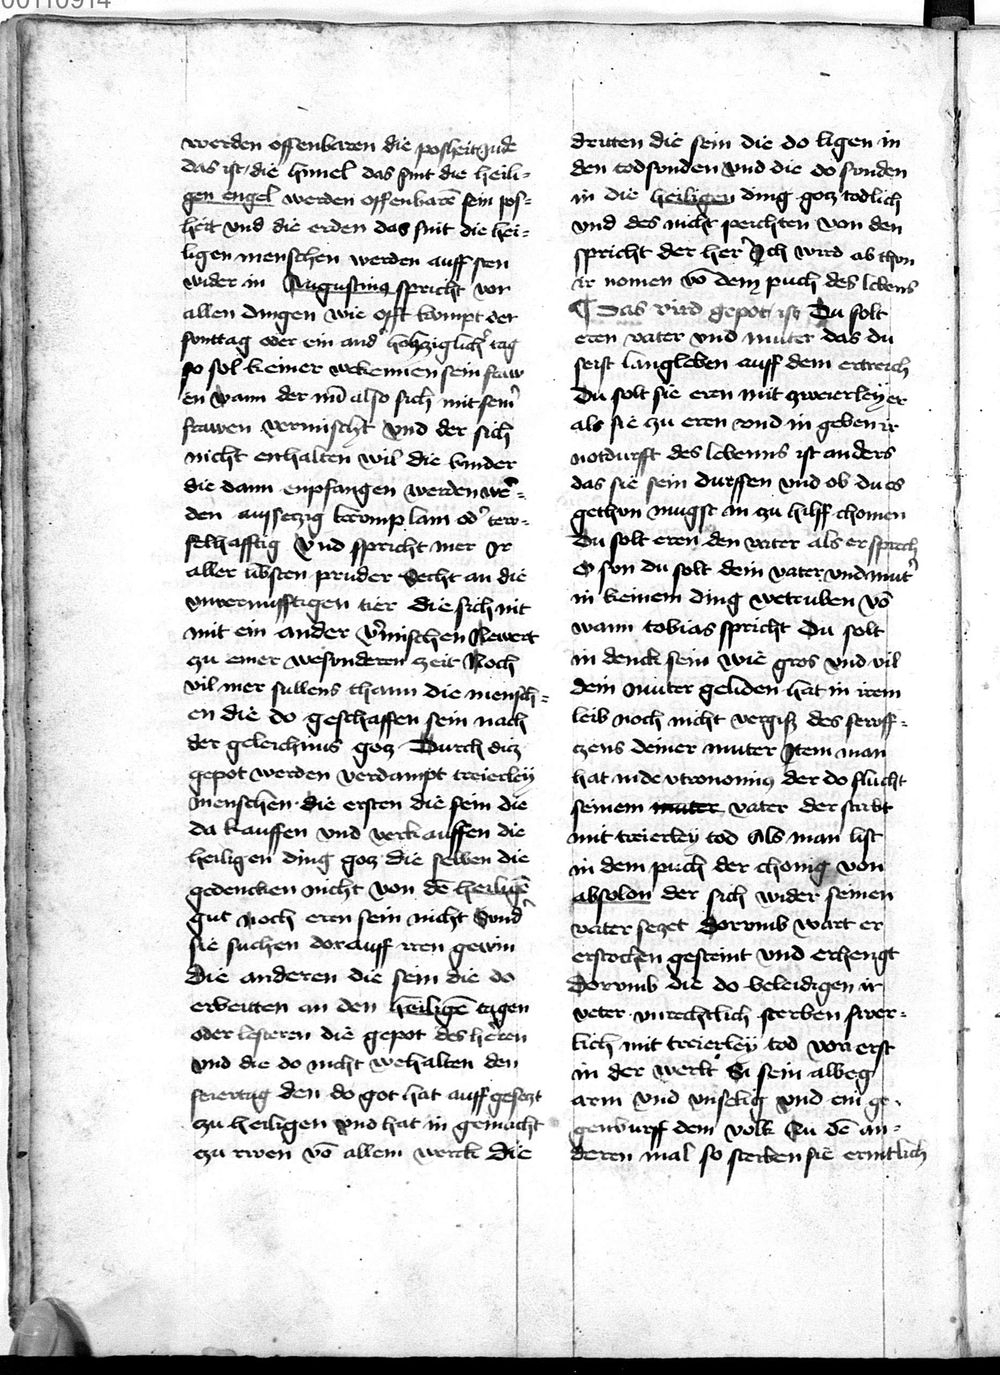 00110914
werden offenbaren die posheit Jude
das ist die himel das sint die heili-
gen engel werden offenbarē sein pos-
heit vnd die erden das sint die hei-
ligen menschen werden auff sten
wider in Augustinus spricht vor
allen dingen wie offt kompt der
sunttag oder ein and' hochziglich' tag
so sol keiner wekennen sein fraw
en Wann der mā also sich mit sein'
frawen vermischt Vnd der sich
nicht enthalten wil die kinder
die dann enpfangen werden wer-
den aussetzig kromp lam od' tew-
felhafftig Vnd spricht mer Ir
aller libsten pruder Secht an die
vnvernufftigen tier die sich nit
mit ein ander v'mischen Newert
zu einer wesonderen zeit Noch
vil mer sullens thann die mensch-
en die do geschaffen sein nach
der geleichnus gotz Durch ditz
gepot werden verdampt treierley
menschen die ersten die sein die
da kauffen vnd verkauffen die
heiligen ding gotz die selben die
gedencken nicht von dē heiligē
gut noch eren sein nicht Sund'
sie suchen dorauff iren gewin
Die anderen die sein die do
erbeitten an den heiligē tagen
oder lesteren die gepot des heren
vnd die do nicht wehalten den
feiertag den do got hat auff gesetzt
zu heiligen vnd hat in gemacht
zu rwen vō allem werck Die
dritten die sein die do ligen in
den todsunden vnd die do sunden
in die heiligen ding gotz todlich
vnd des nicht peichten von den
spricht der her Ich wird ab thun
ir nomen vō dem puch des lebens
¶ Das vird gepot ist Du solt
eren vater vnd muter das du
seist langleben auff dem ertreich
Du solt sie eren mit zweierley er
als sie zu eren vnd in geben ir
notdurfft des lebenns ist anders
das sie sein durffen vnd ob du es
gethun mugst in zu hilff chomen
Du solt eren den vater als er sprech
O sun du solt dein vater vnd mut'
in keinem ding wetruben Vō
wann tobias spricht Du solt
in denck sein wie gros vnd vil
dein muter geliden hat in irem
leib noch nicht vergiss des seuff-
czens deiner muter Item man
hat in deutronomius der do flucht
seinem muter vater der stirbt
mit treierley tod Als man list
in dem puch der chonig von
absolon der sich wider seinen
vater sezet Dorvmb wart er
erstochen gesteint vnd erhengt
Dorvmb die do beleidigen ir
veter vnrechtlich sterben swer-
lich mit treierley tod von erst
in der werlt Si sein albeg
arm vnd vnselig vnd ein ge-
genwurff dem volk Zu dē an-
deren mal so sterben sie ermtlich